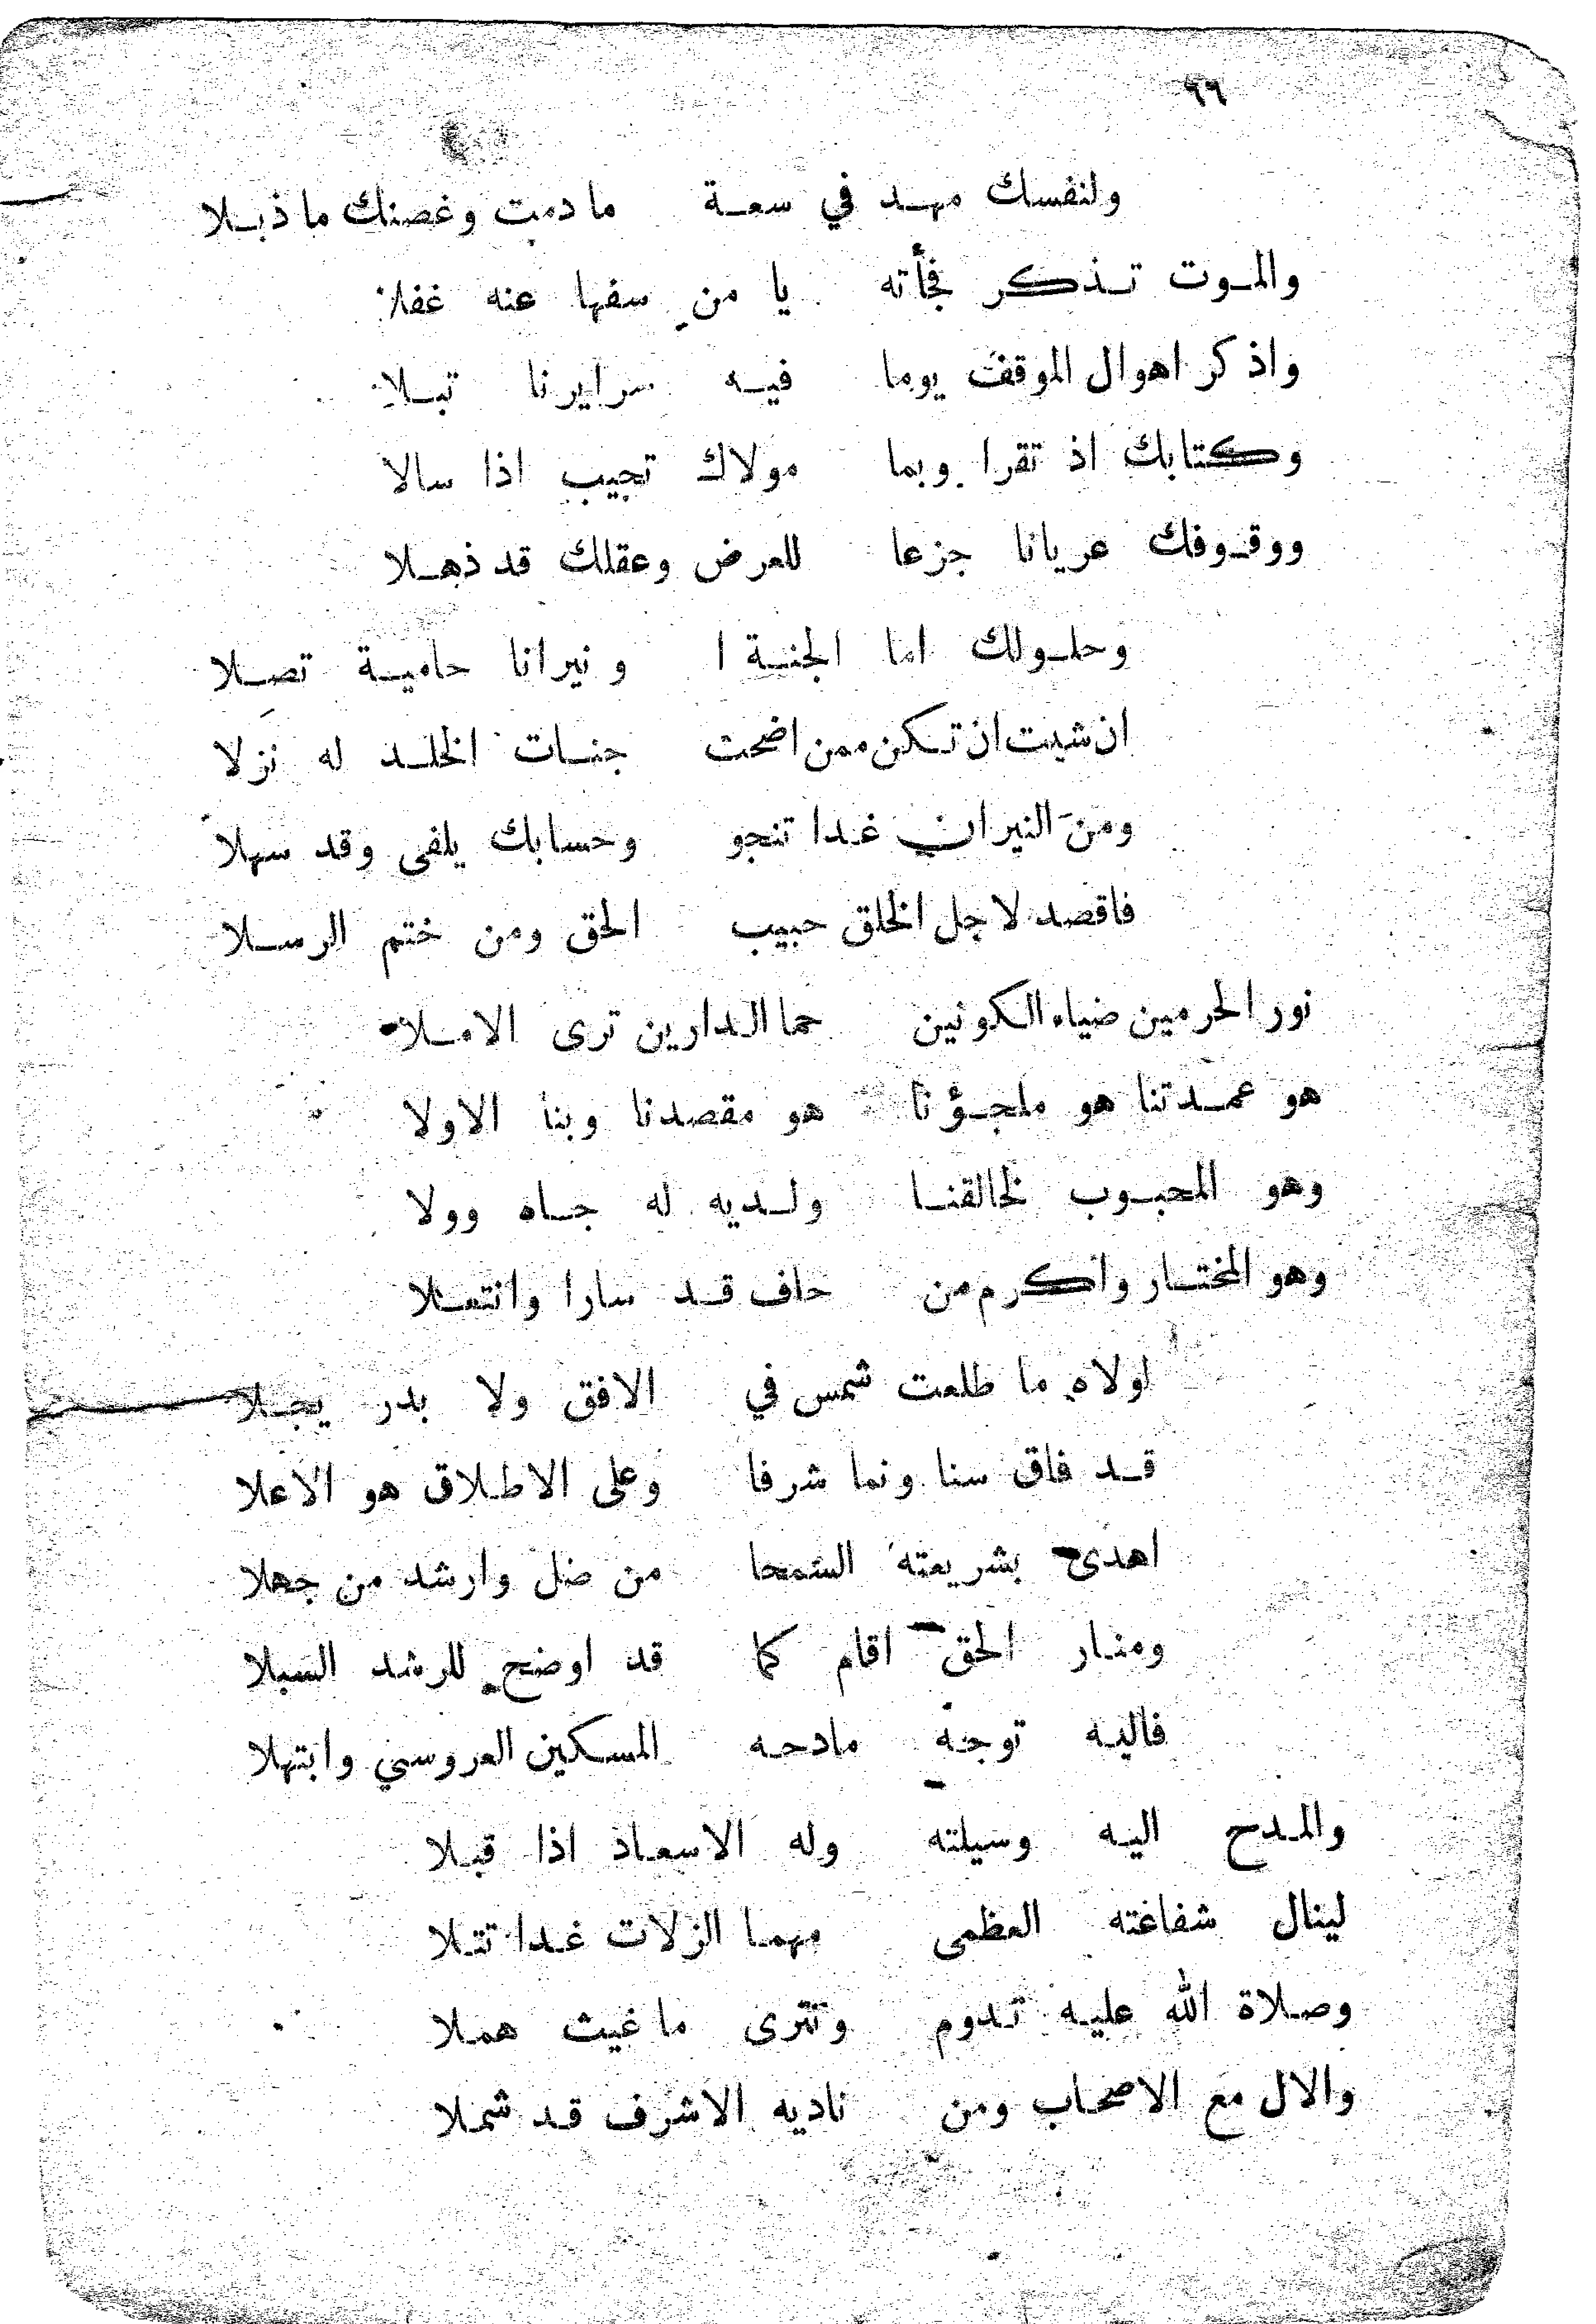 ٩٦
ولنفسك مهد في سعة ما دمت وغصنك ما ذبلا
والموت تذكر فجأته يا من سفها عنه غفلا
واذكر اهوال الموقف يوما فيه سرايرنا تبلا
وكتابك اذ تقرا وبما مولاك تجيب اذا سالا
ووقوفك عريانا جزعا للعرض وعقلك قد ذهلا
وحلولك اما الجنة ا ونيرانا حامية تصلا
ان شيت ان تكن ممن اضحت جنات الخلد له نزلا
ومن النيران غدا تنجو وحسابك يلفى وقد سهلا
فاقصد لاجل الخلق حبيب الحق ومن ختم الرسلا
نور الحرمين ضياء الكونين حما الدارين ترى الاملا
هو عمدتنا هو ملجؤنا هو مقصدنا وبنا الاولا
وهو المحبوب لخالقنا ولديه له جاه وولا
وهو المختار واكرم من حاف قد سارا وانتعلا
لولاه ما طلعت شمس في الافق ولا بدر يجلا
قد فاق سنا ونما شرفا وعلى الاطلاق هو الاعلا
اهدى بشريعته السمحا من ضل وارشد من جهلا
ومنار الحق اقام كما قد اوضح للرشد السبلا
فاليه توجه مادحه المسكين العروسي وابتهلا
والمدح اليه وسيلته وله الاسعاد اذا قبلا
لينال شفاعته العظمى مهما الزلات غدا تتلا
وصلاة الله عليه تدوم وتترى ما غيث هملا
والال مع الاصحاب ومن ناديه الاشرف قد شملا